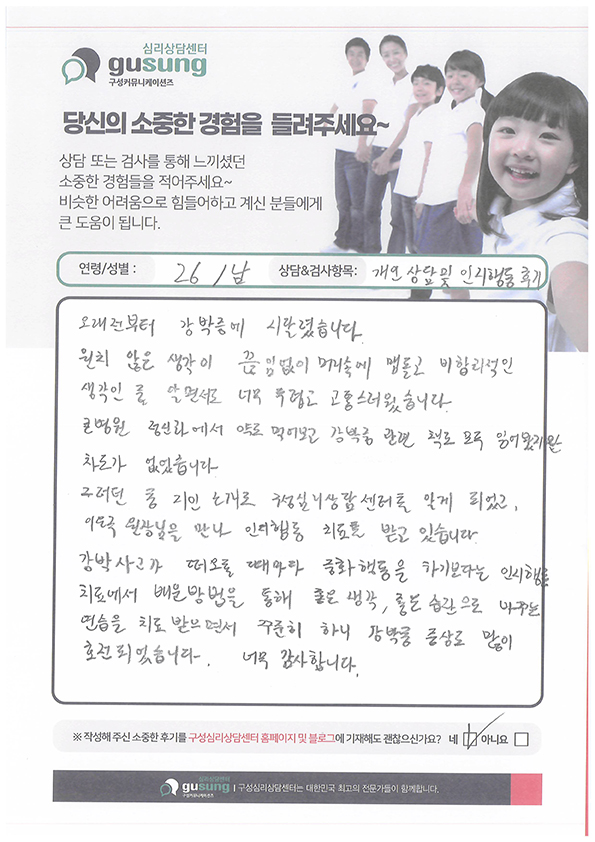 심리상담센터
gusung
구성커뮤니케이션즈
당신의 소중한 경험을 들려주세요~
상담 또는 검사를 통해 느끼셨던
소중한 경험들을 적어주세요~
비슷한 어려움으로 힘들어하고 계신 분들에게
큰 도움이 됩니다.
연령/성별 : 26 / 남 상담&검사항목: 개인상담 및 인지행동 후기
오래전부터 강박증에 시달렸습니다.
원치 않은 생각이 끊임없이 머리속에 맴돌고 비합리적인
생각인 줄 알면서도 너무 두렵고 고통스러웠습니다.
큰병원 정신과에서 약도 먹어보고 강박증 관련 책도 모두 읽어봤지만
차도가 없었습니다.
그러던 중 지인 소개로 구성심리상담센터를 알게 되었고,
원장님을 만나 인지행동 치료를 받고 있습니다.
강박사고가 떠오를 때마다 중화행동을 하기보다는 인지행동
치료에서 배운방법을 통해 좋은 생각, 좋은 습관으로 바꾸는
연습을 치료 받으면서 꾸준히 하니 강박증 증상도 많이
호전되었습니다. 너무 감사합니다.
※ 작성해 주신 소중한 후기를 구성심리상담센터 홈페이지 및 블로그에 기재해도 괜찮으신가요? 네 아니요
심리상담센터
gusung
구성커뮤니케이션즈
구성심리상담센터는 대한민국 최고의 전문가들이 함께합니다.